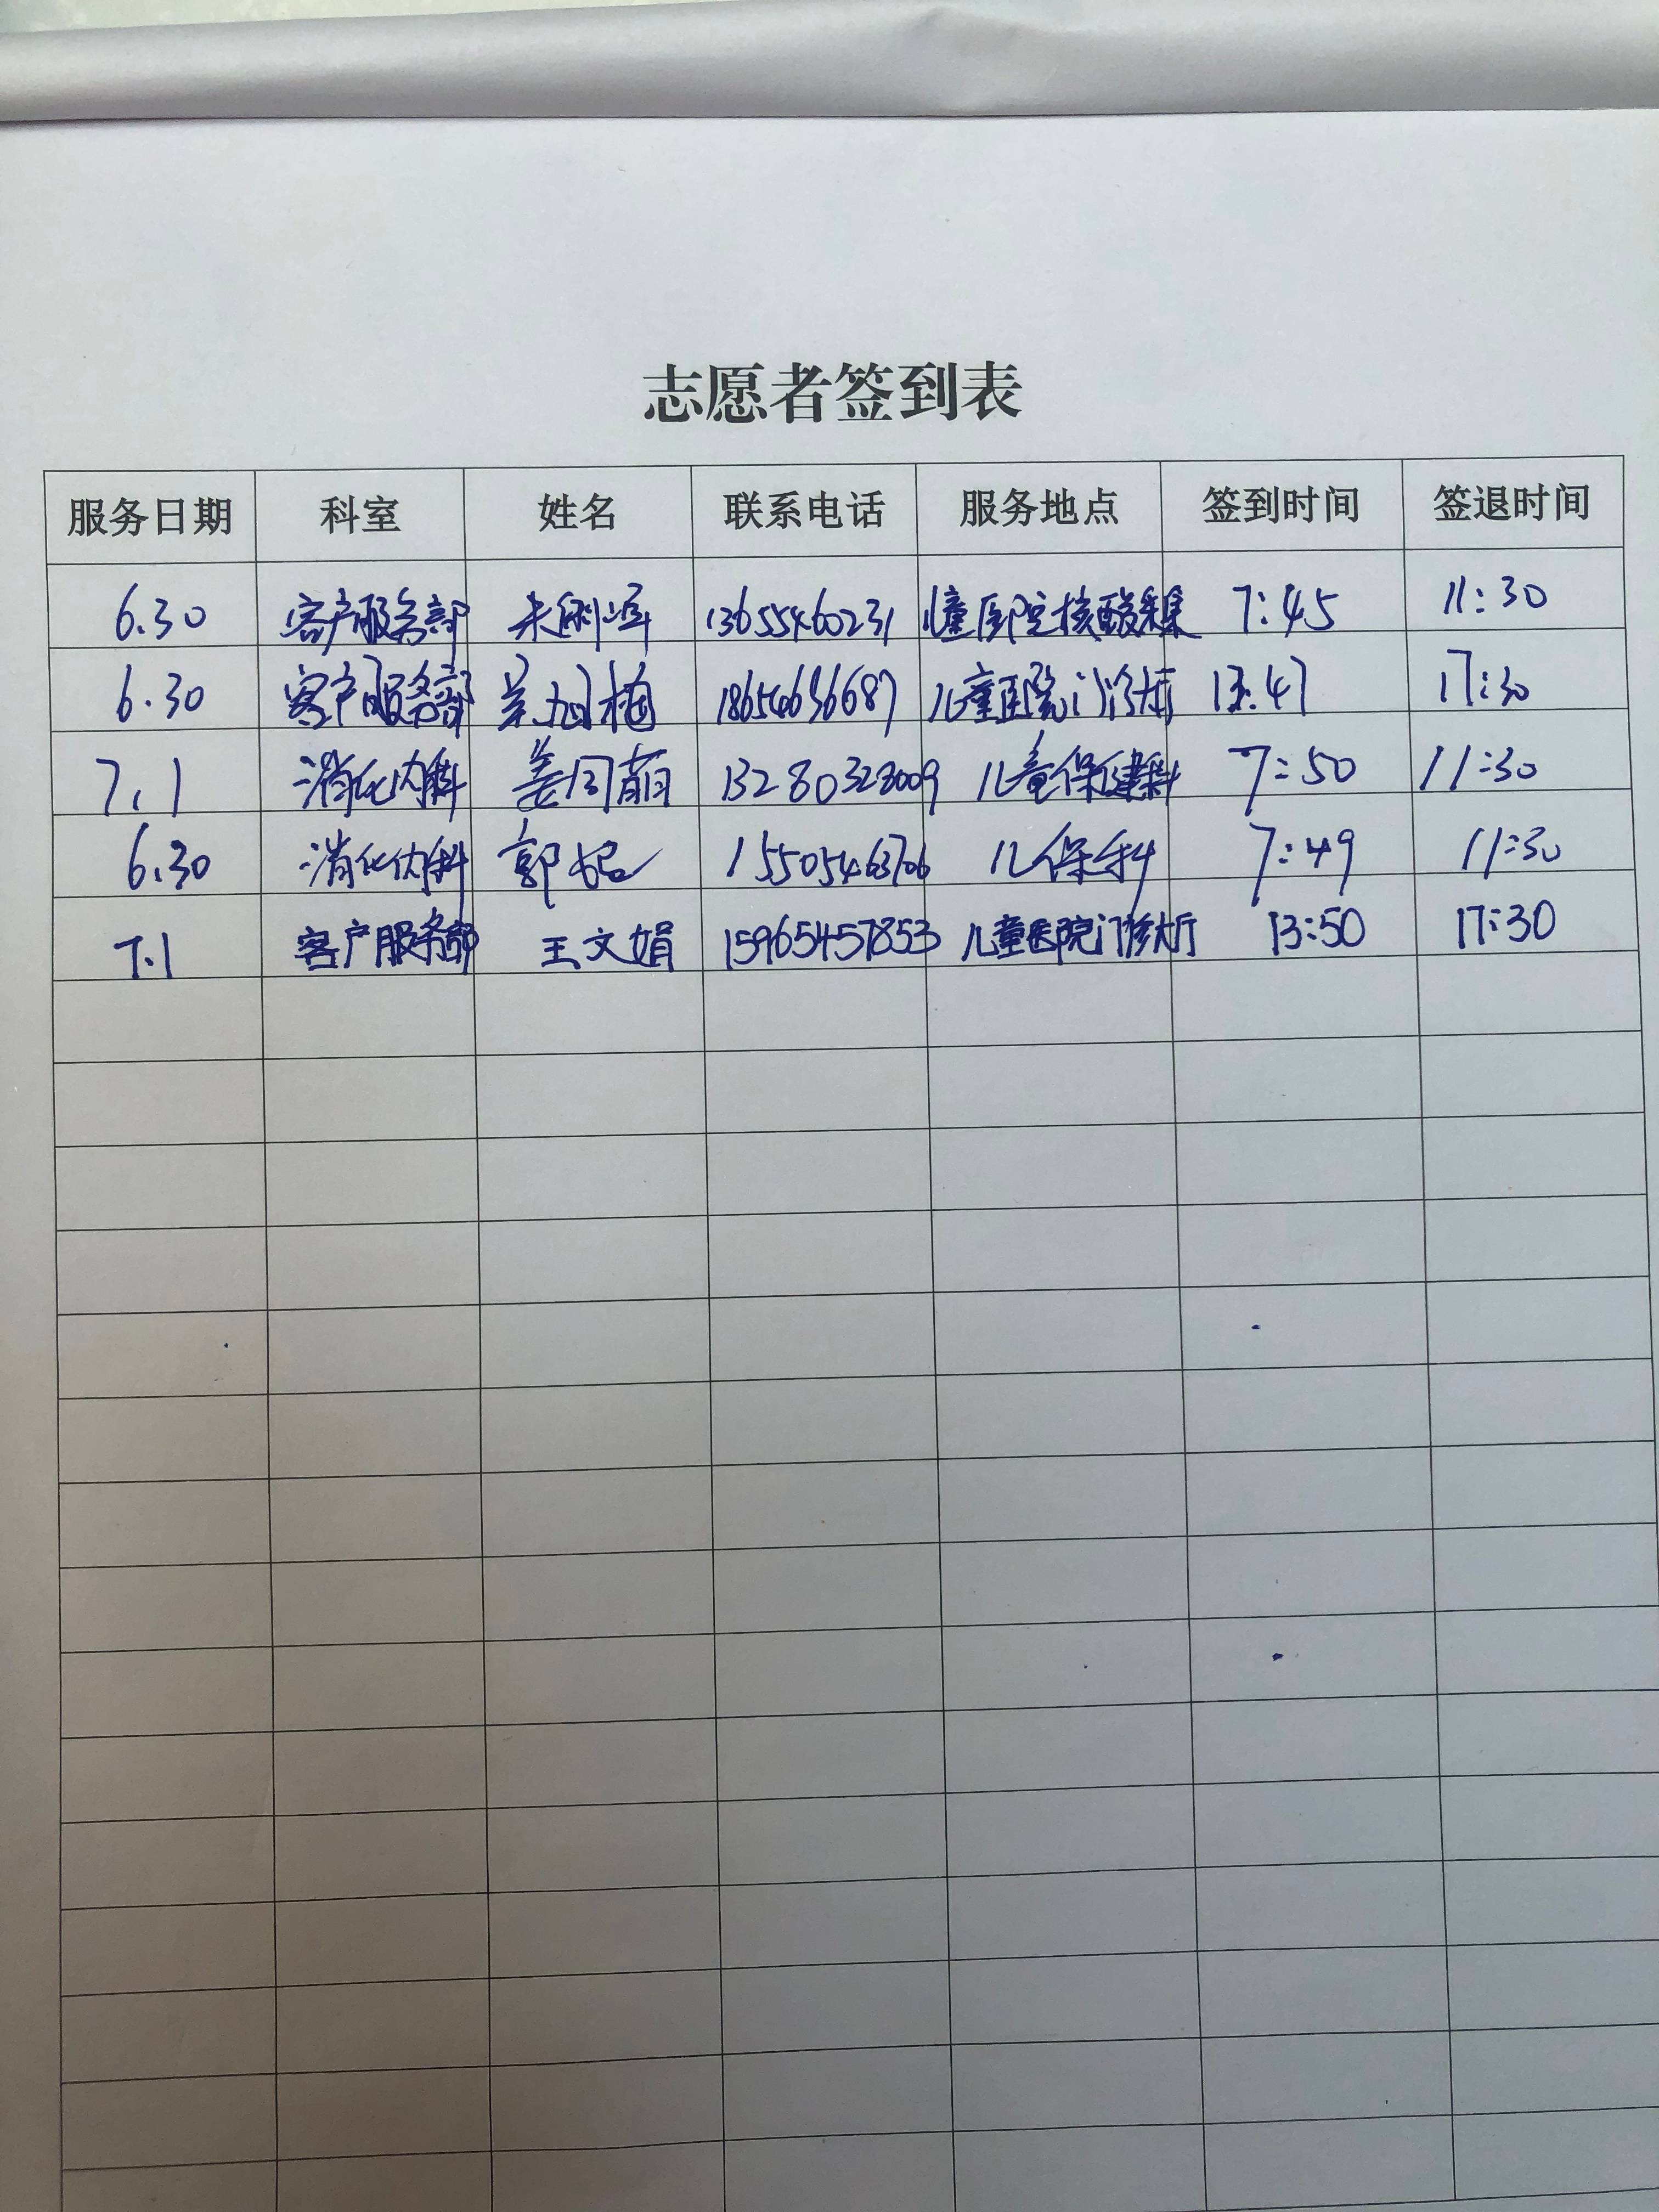 志愿者签到表
服务日期 科室 姓名 联系电话 服务地点 签到时间 签退时间
6.30 客户服务部 13655460231 儿童医院核酸采集 7:45 11:30
6.30 客户服务部 18654636687 儿童医院门诊大厅 13:47 17:30
7.1 消化内科 姜周萌 13280328009 儿童保健科 7:50 11:30
6.30 消化内科 郭 15505463706 儿保科 7:49 11:30
7.1 客户服务部 王文娟 15965457853 儿童医院门诊大厅 13:50 17:30